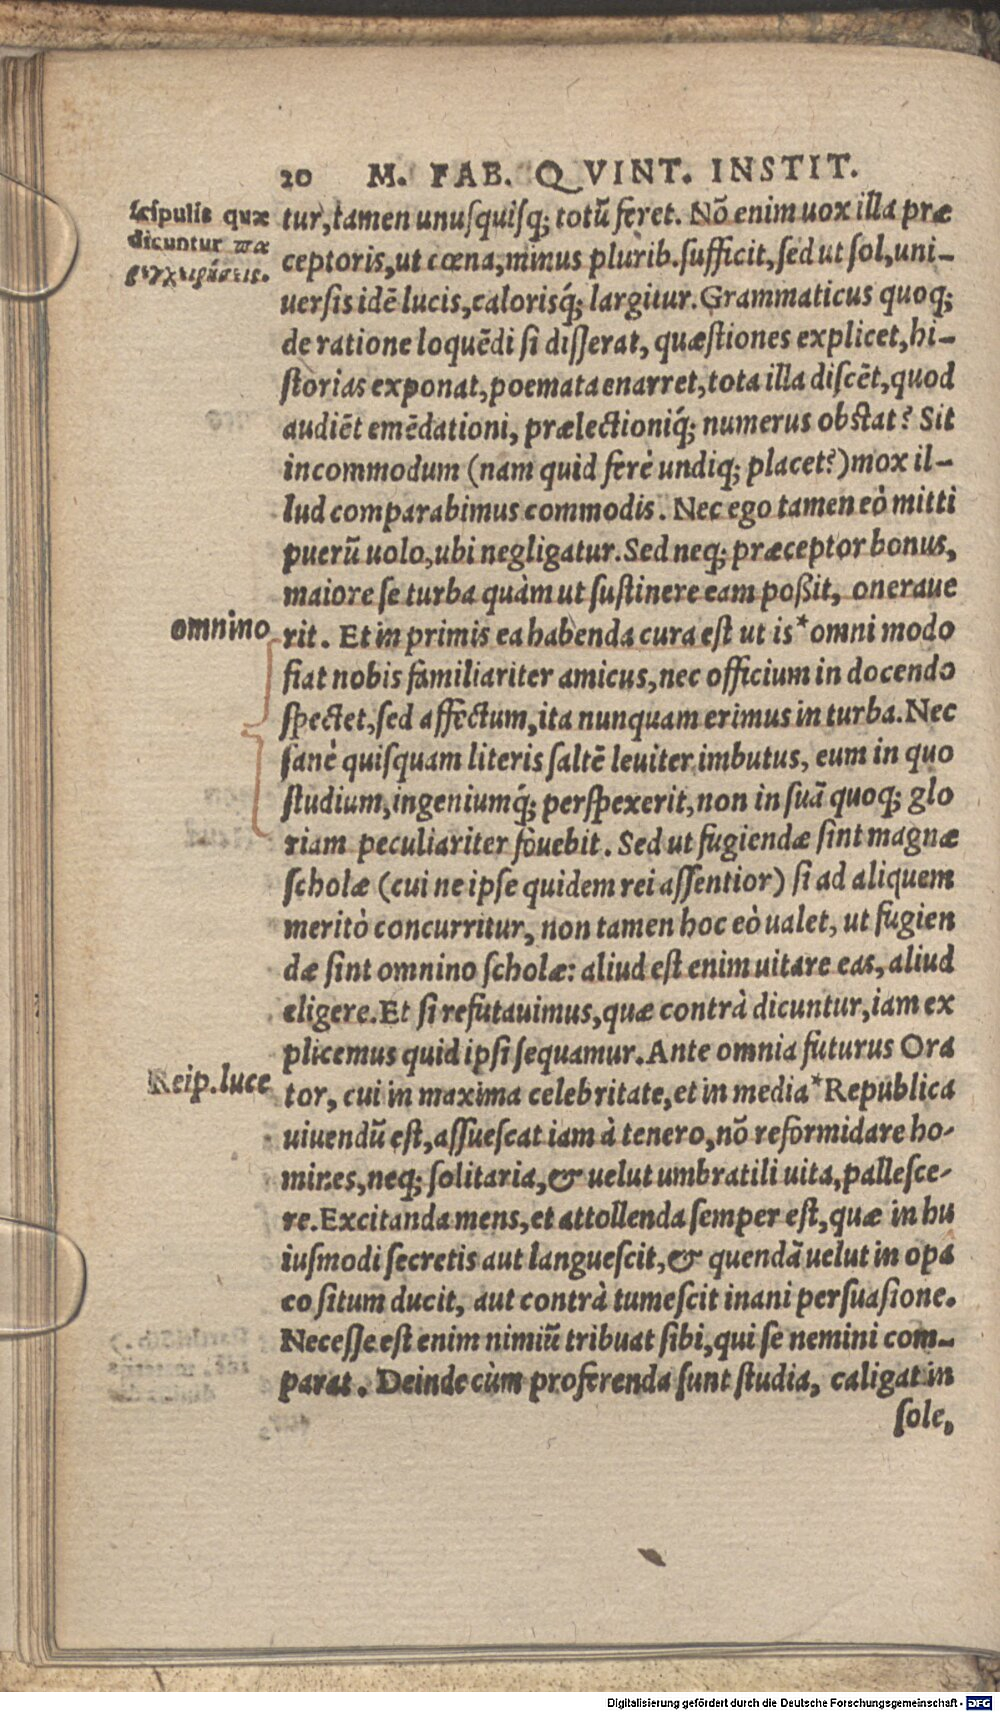 20 M. FAB. QVINT. INSTIT.
scipulis quæ
dicuntur πα
ρεγχειρήσεις.
tur, tamen unusquisq; totũ feret. Nõ enim uox illa præ
ceptoris, ut cœna, minus plurib. sufficit, sed ut sol, uni-
uersis idẽ lucis, calorisq́; largitur. Grammaticus quoq;
de ratione loquẽdi si disserat, quæstiones explicet, hi-
storias exponat, poemata enarret, tota illa discẽt, quod
audiẽt emẽdationi, prælectioniq́; numerus obstat? Sit
incommodum (nam quid ferè undiq; placet?) mox il-
lud comparabimus commodis. Nec ego tamen eò mitti
puerũ uolo, ubi negligatur. Sed neq; præceptor bonus,
maiore se turba quàm ut sustinere eam poßit, oneraue
omnino
rit. Et in primis ea habenda cura est ut is* omni modo
fiat nobis familiariter amicus, nec officium in docendo
spectet, sed affectum, ita nunquam erimus in turba. Nec
sanè quisquam literis saltẽ leuiter imbutus, eum in quo
studium, ingeniumq́; perspexerit, non in suã quoq; glo
riam peculiariter fouebit. Sed ut fugiendæ sint magnæ
scholæ (cui ne ipse quidem rei assentior) si ad aliquem
meritò concurritur, non tamen hoc eò ualet, ut fugien
dæ sint omnino scholæ: aliud est enim uitare eas, aliud
eligere. Et si refutauimus, quæ contrà dicuntur, iam ex
plicemus quid ipsi sequamur. Ante omnia futurus Ora
Reip. luce
tor, cui in maxima celebritate, et in media* Republica
uiuendũ est, assuescat iam à tenero, nõ reformidare ho-
mines, neq; solitaria, & uelut umbratili uita, pallesce-
re. Excitanda mens, et attollenda semper est, quæ in hu
iusmodi secretis aut languescit, & quendã uelut in opa
co situm ducit, aut contrà tumescit inani persuasione.
Necesse est enim nimiũ tribuat sibi, qui se nemini com-
parat. Deinde cùm proferenda sunt studia, caligat in
sole,
Digitalisierung gefördert durch die Deutsche Forschungsgemeinschaft - DFG